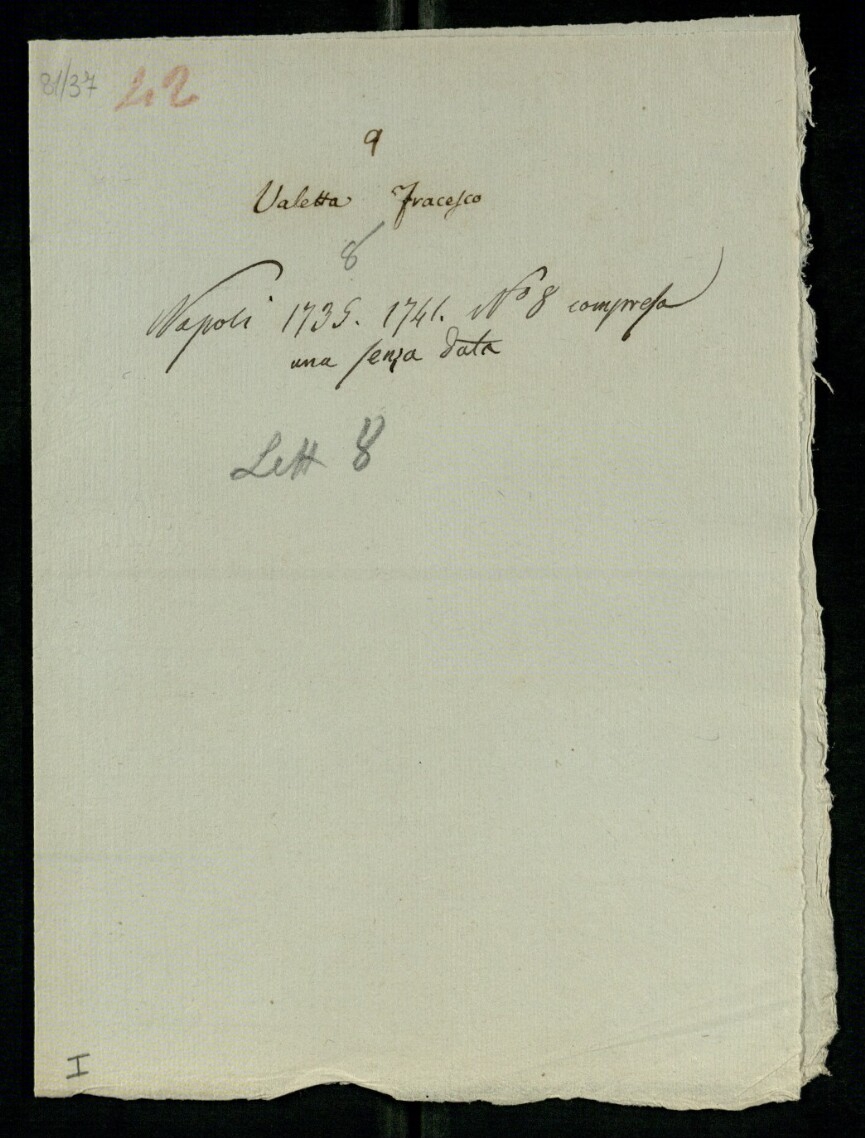 81/37 22
9
Valetta Fracesco
8
Napoli 1735. 1741. Nº 8 compresa
una senza data
Lett 8
I